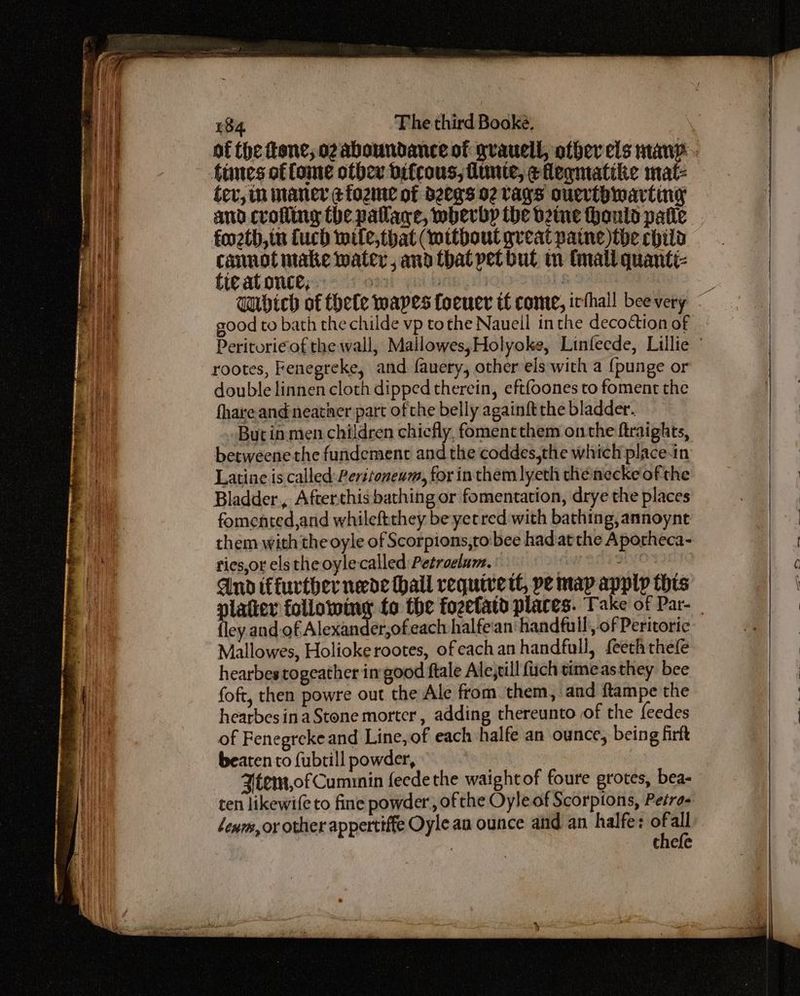 184 The third Booke.
of the stone, or aboundance of grauell, other els many
times of some other viscous, slimie, & flegmatike mat-
ter, in maner & forme of dregs or rags ouerthwarting
and crossing the passage, wherby the vrine should passe
foorth, in such wise, that (without great paine) the child
cannot make water, and that yet but in small quanti-
tie at once.
Which of these wayes soeuer it come, it shall bee very
good to bath the childe vp to the Nauell in the decoction of
Peritorie of the wall, Mallowes, Holyoke, Linseede, Lillie
rootes, Fenegreke, and sauery, other els with a spunge or
double linnen cloth dipped therein, eftsoones to foment the
share and neather part of the belly against the bladder.
But in men children chiefly, foment them on the straights,
betweene the fundement and the coddes, the which place in
Latine is called Peritoneum, for in them lyeth the necke of the
Bladder, After this bathing or fomentation, drye the places
fomented, and whilest they be yet red with bathing, annoynt
them with the oyle of Scorpions, to bee had at the Apotheca-
ries, or els the oyle called Petroelum.
And if further neede shall require it, ye may apply this
plaster following to the foresaid places. Take of Par-
sley and of Alexander, of each halfe an handfull, of Peritorie
Mallowes, Holioke rootes, of each an handfull, seeth these
hearbes togeather in good stale Ale, till such time as they bee
soft, then powre out the Ale from them, and stampe the
hearbes in a Stone morter, adding thereunto of the seedes
of Fenegreke and Line, of each halfe an ounce, being first
beaten to subtill powder,
Item, of Cummin seede the waight of foure grotes, bea-
ten likewise to fine powder, of the Oyle of Scorpions, Petro-
leum, or other appertisse Oyle an ounce and an halfe: of all
these